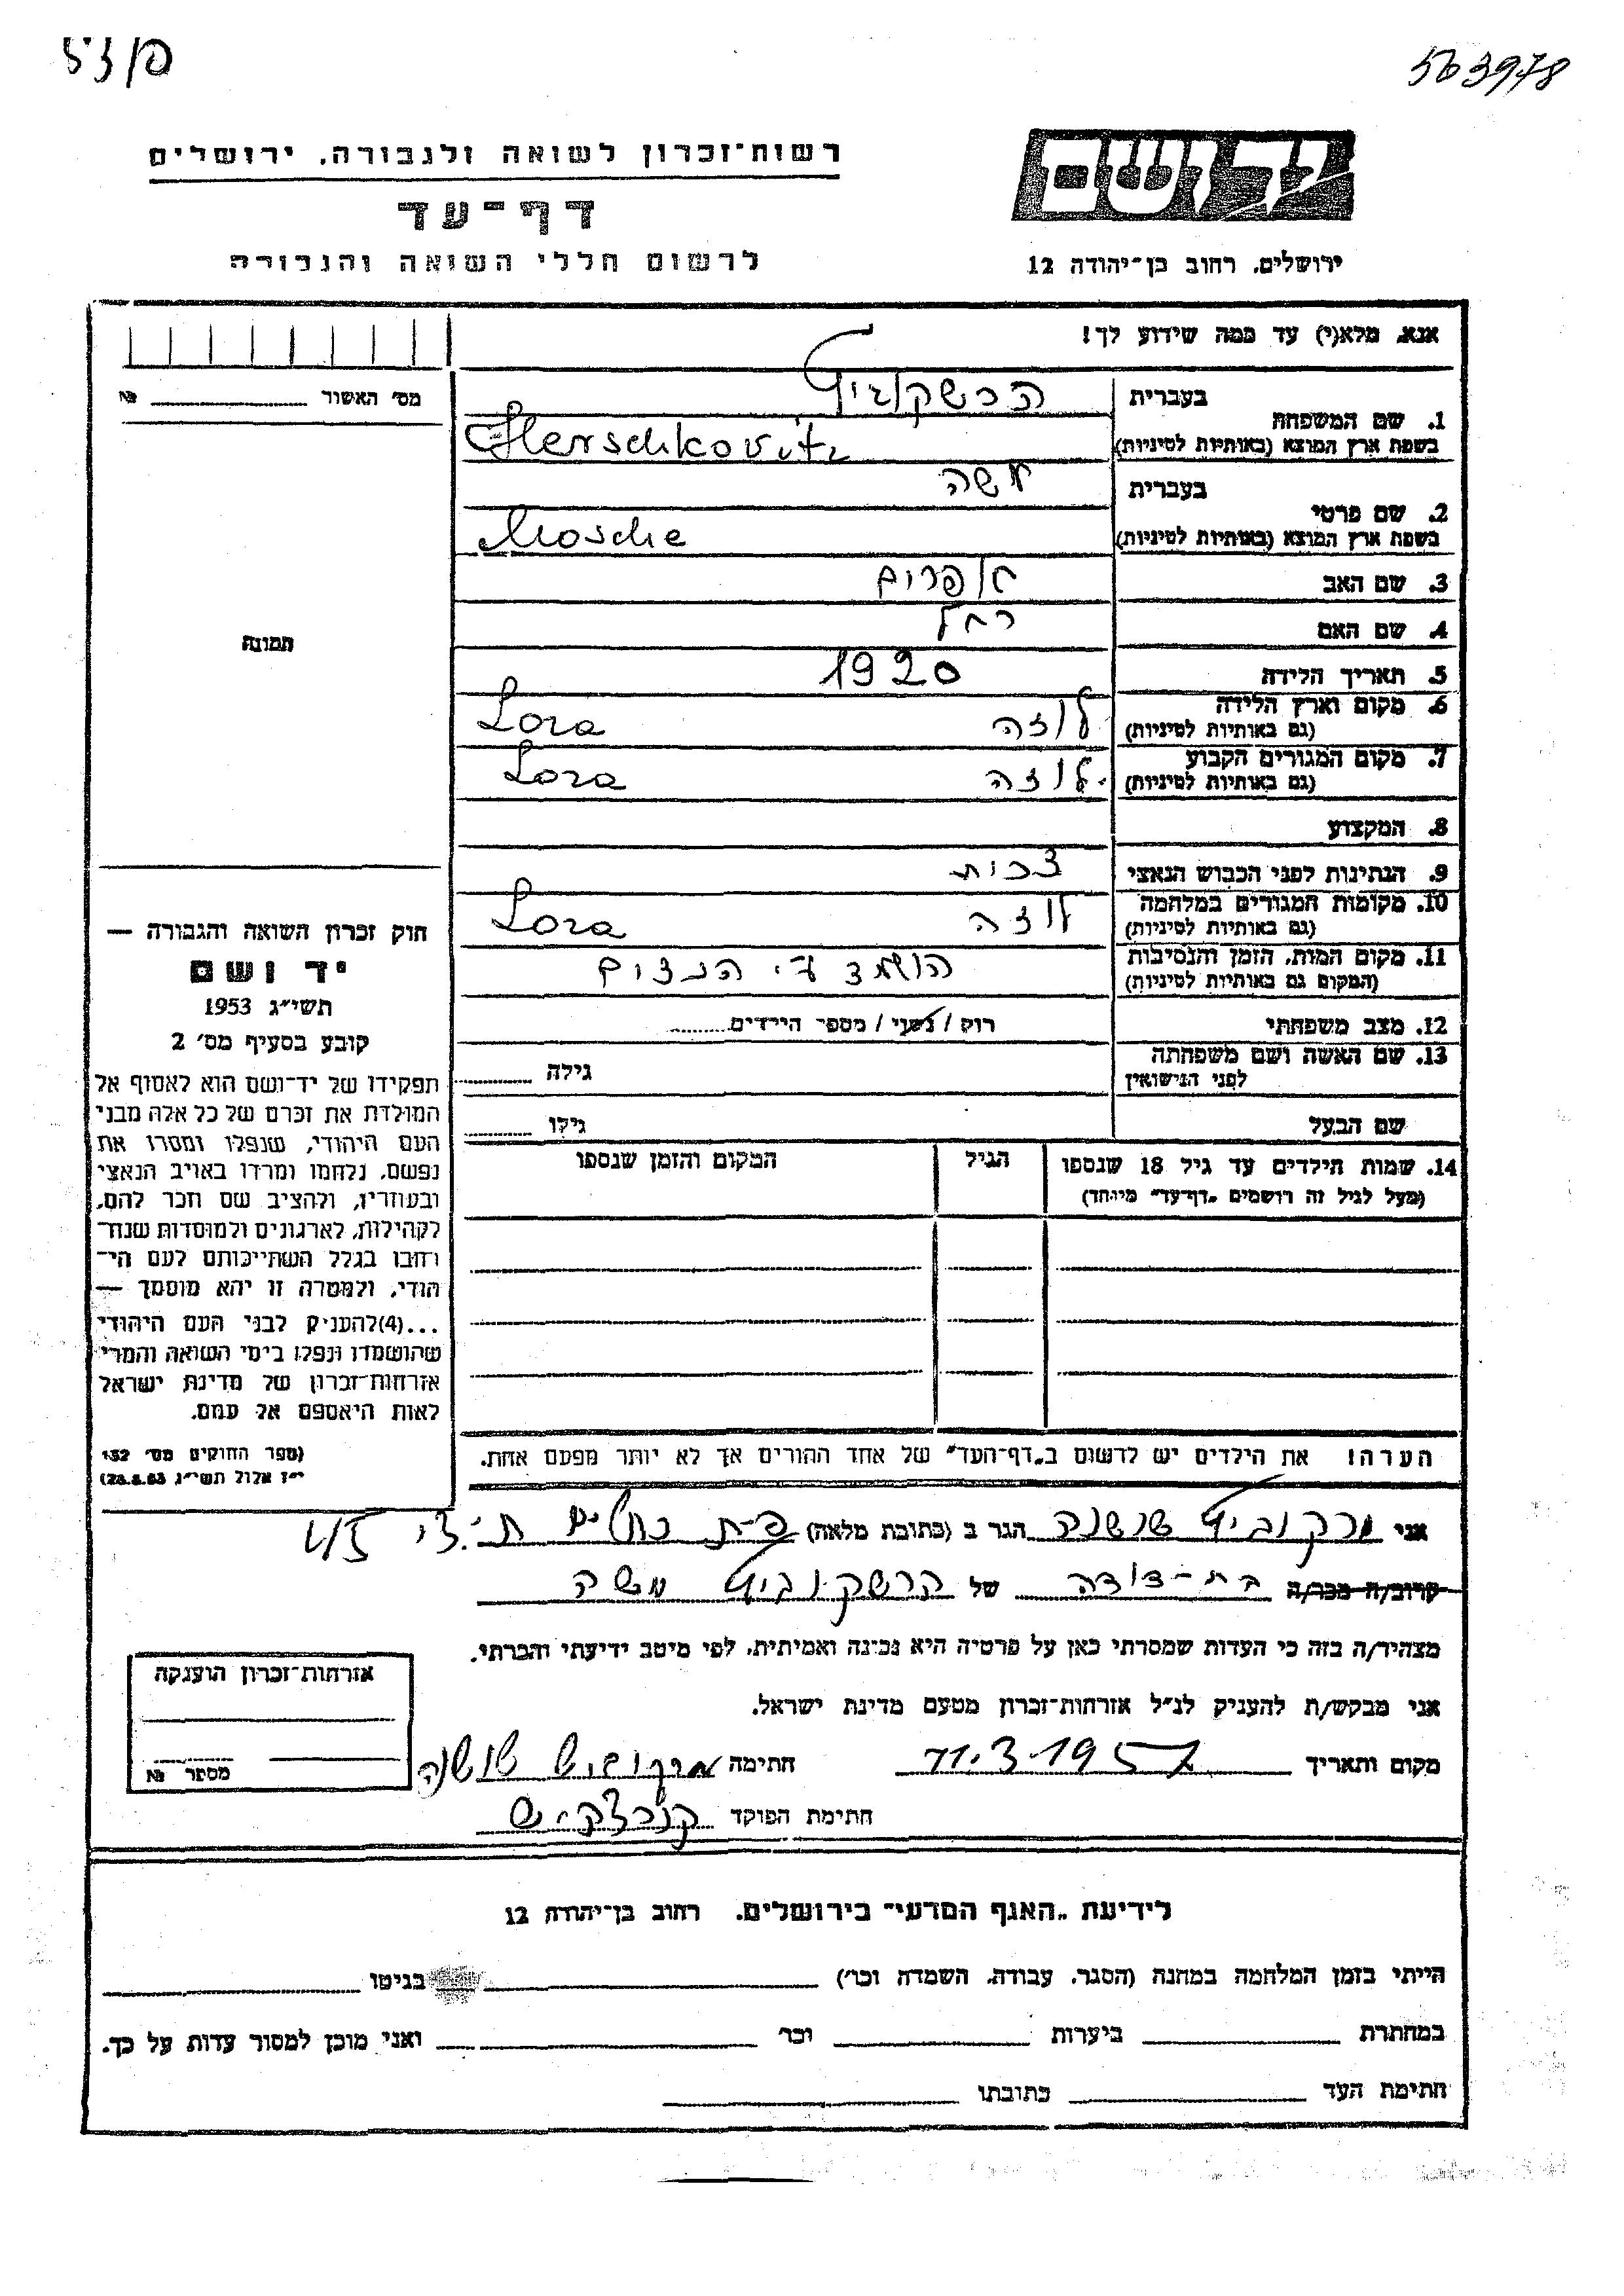 563978
53/פ
ידושם
ירושלים, רחוב בן־יהודה 12
רשות־זכרון לשואה ולגבורה, ירושלים
דף־עד
לרשום חללי השואה והגבורה
אנא, מלא(י) עד כמה שידוע לך!
1. שם המשפחה בעברית הרשקוביץ
בשפת ארץ המוצא (באותיות לטיניות) Herschkovitz
2. שם פרטי בעברית משה
בשפת ארץ המוצא (באותיות לטיניות) Mosche
3. שם האב אפרים
4. שם האם רחל
5. תאריך הלידה 1920
6. מקום וארץ הלידה לוזה Loza
(גם באותיות לטיניות)
7. מקום המגורים הקבוע לוזה Loza
(גם באותיות לטיניות)
8. המקצוע
9. הנתינות לפני הכבוש הנאצי צכית
10. מקומות המגורים במלחמה לוזה Loza
(גם באותיות לטיניות)
11. מקום המות, הזמן והנסיבות הושמד ע״י הנצים
(המקום גם באותיות לטיניות)
12. מצב משפחתי רוק / נשוי / מספר הילדים
13. שם האשה ושם משפחתה גילה
לפני הנישואין
שם הבעל גילו
14. שמות הילדים עד גיל 18 שנספו הגיל המקום והזמן שנספו
(מעל לגיל זה רושמים „דף־עד״ מיוחד)
הערה! את הילדים יש לרשום ב„דף־העד״ של אחד ההורים אך לא יותר מפעם אחת.
מס׳ האשור №
תמונה
חוק זכרון השואה והגבורה —
יד ושם
תשי״ג 1953
קובע בסעיף מס׳ 2
תפקידו של יד־ושם הוא לאסוף אל
המולדת את זכרם של כל אלה מבני
העם היהודי, שנפלו ומסרו את
נפשם, נלחמו ומרדו באויב הנאצי
ובעוזריו, ולהציב שם וזכר להם,
לקהילות, לארגונים ולמוסדות שנח־
רבו בגלל השתייכותם לעם הי־
הודי, ולמטרה זו יהא מוסמך —
...(4) להעניק לבני העם היהודי
שהושמדו ונפלו בימי השואה והמרי
אזרחות־זכרון של מדינת ישראל
לאות היאספם אל עמם.
(ספר החוקים מס׳ 132
י״ז אלול תשי״ג 28.8.53)
אני מרקוביץ שושנה הגר ב (כתובת מלאה) בית נחליים ת.ד.
קרוב/ה מכר/ה בת-דודה של הרשקוביץ משה
מצהיר/ה בזה כי העדות שמסרתי כאן על פרטיה היא נכונה ואמיתית, לפי מיטב ידיעתי והכרתי.
אני מבקש/ת להעניק לנ״ל אזרחות־זכרון מטעם מדינת ישראל.
מקום ותאריך 11.3.1957 חתימה מרקוביץ שושנה
חתימת הפוקד
אזרחות־זכרון הוענקה
מספר №
לידיעת „האגף המדעי״ בירושלים, רחוב בן־יהודה 12
הייתי בזמן המלחמה במחנה (הסגר, עבודה, השמדה וכו׳) בגיטו
במחתרת ביערות וכו׳ ואני מוכן למסור עדות על כך.
חתימת העד כתובתו